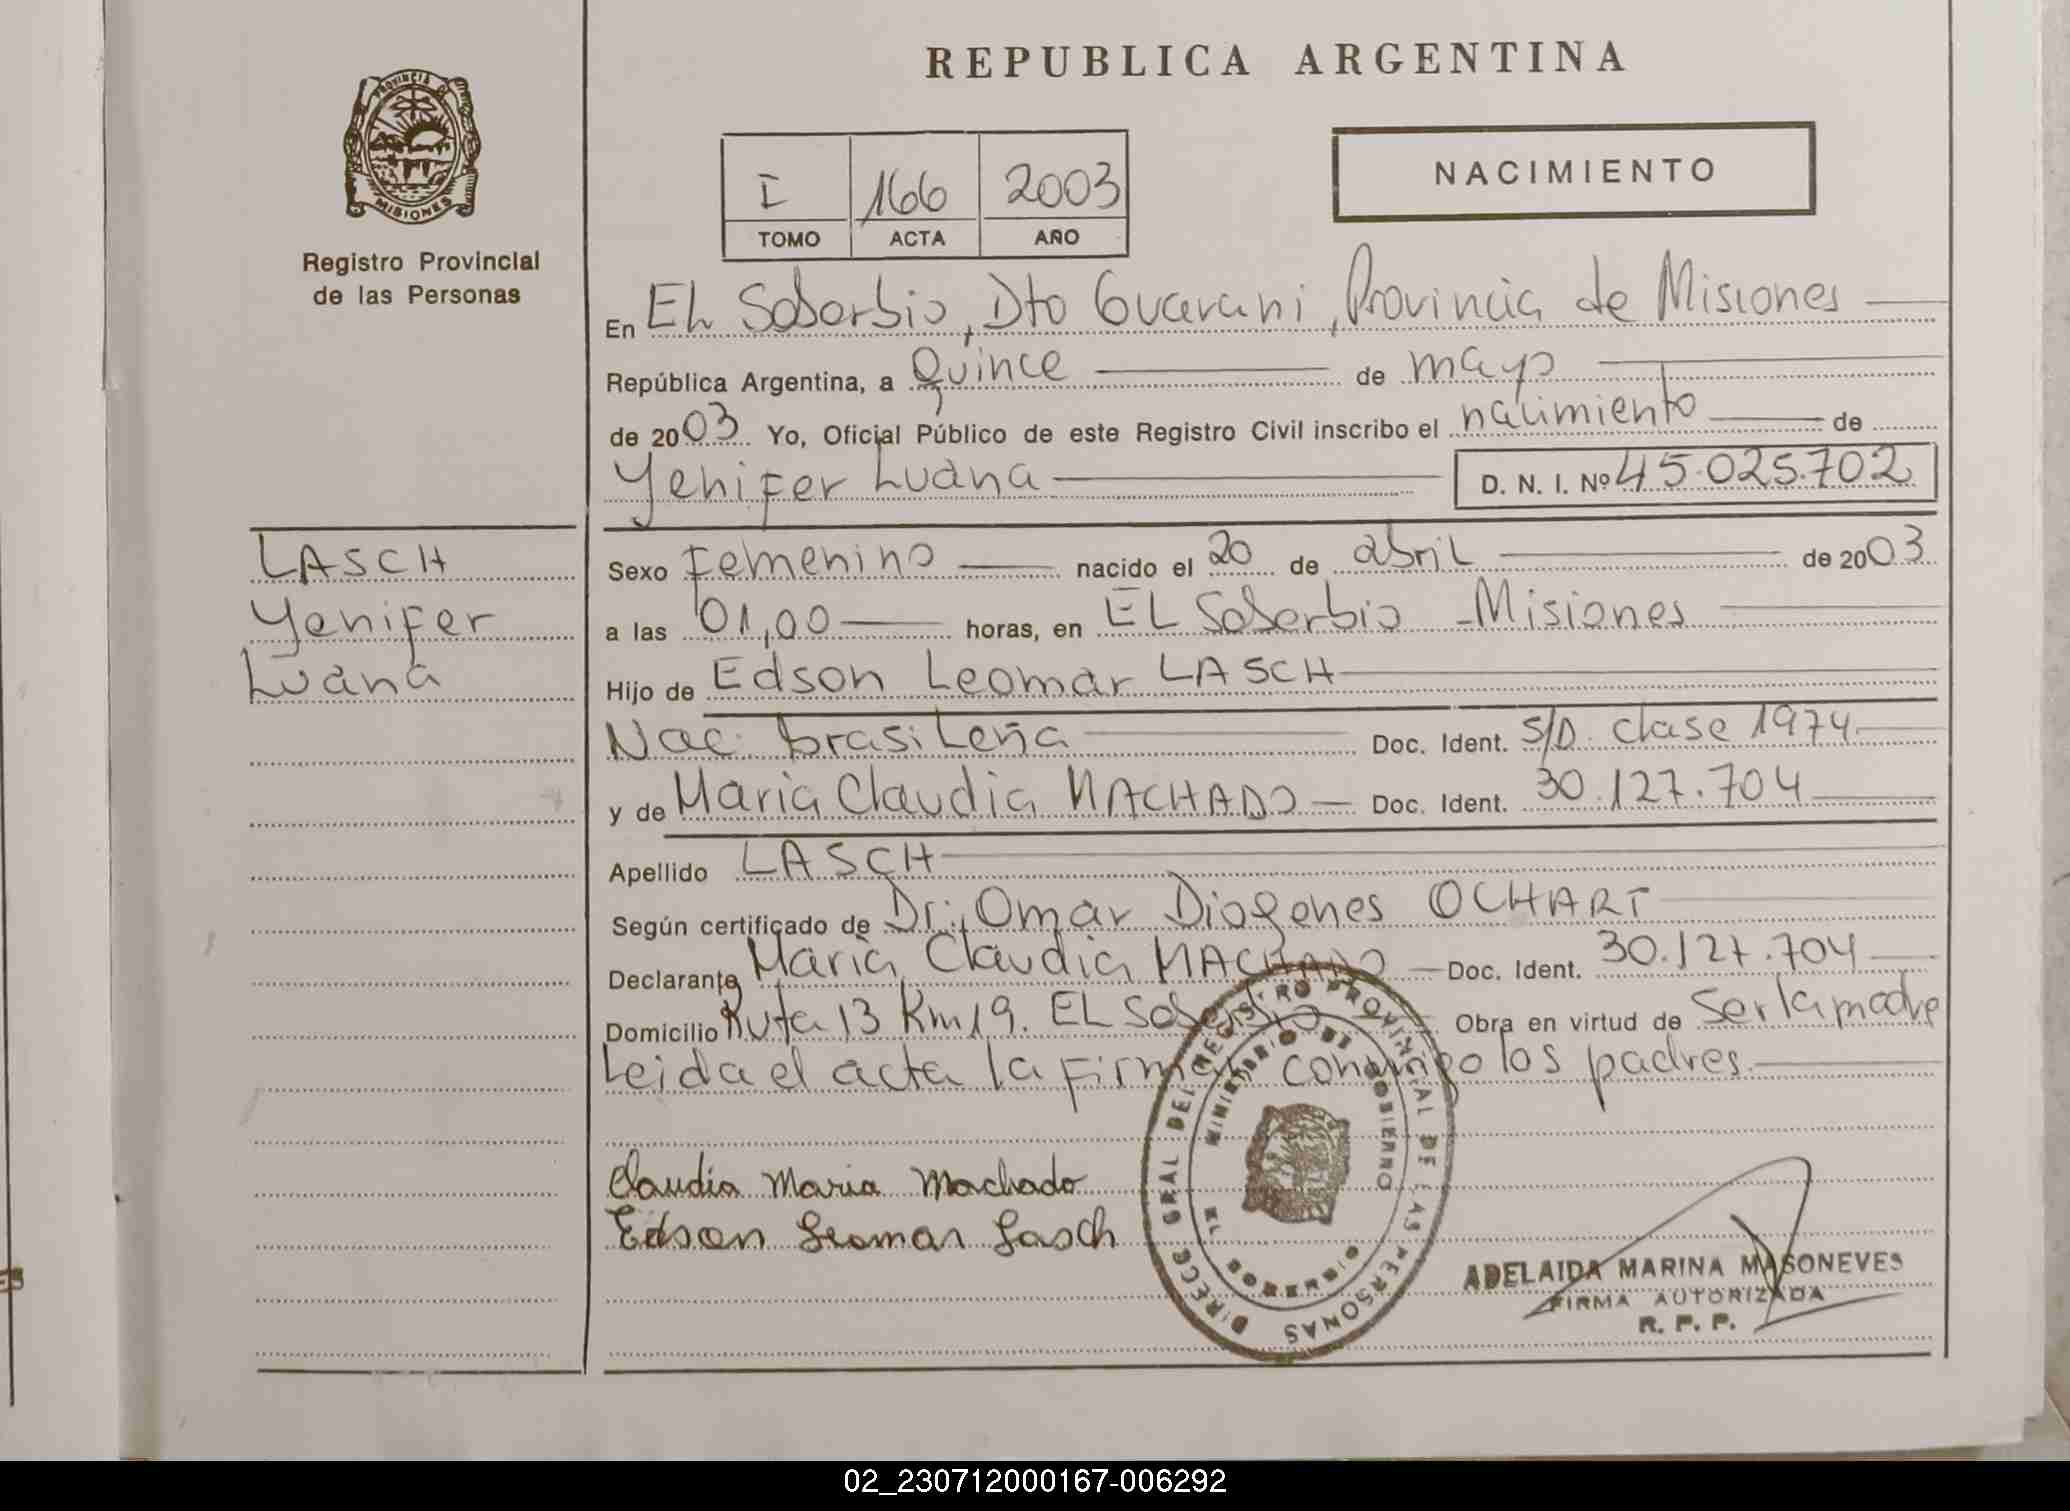 REPUBLICA ARGENTINA
PROVINCIA DE
MISIONES
Registro Provincial
de las Personas
I 166 2003
TOMO ACTA AÑO
NACIMIENTO
En EL Soberbio, Dto Guarani, Provincia de Misiones
República Argentina, a Quince de mayo
de 2003 Yo, Oficial Público de este Registro Civil inscribo el nacimiento de
Yenifer Luana D. N. I. Nº 45.025.702
LASCH
Yenifer
Luana
Sexo Femenino nacido el 20 de abril de 2003
a las 01,00 horas, en EL Soberbio - Misiones
Hijo de Edson Leomar LASCH
Nac. brasileña Doc. Ident. S/D. clase 1974
y de Maria Claudia MACHADO Doc. Ident. 30.127.704
Apellido LASCH
Según certificado de Dr. Omar Diogenes OCHART
Declarante Maria Claudia MACHADO Doc. Ident. 30.127.704
Domicilio Ruta 13 Km 19. EL Soberbio Obra en virtud de ser la madre
Leida el acta la firman conmigo los padres.
Claudia Maria Machado
Edson Leomar Lasch
DIRECC GRAL DEL REGISTRO PROVINCIAL DE LAS PERSONAS
MINISTERIO DE GOBIERNO
EL SOBERBIO
ADELAIDA MARINA MASONEVES
FIRMA AUTORIZADA
R. P. P.
ES
02_230712000167-006292